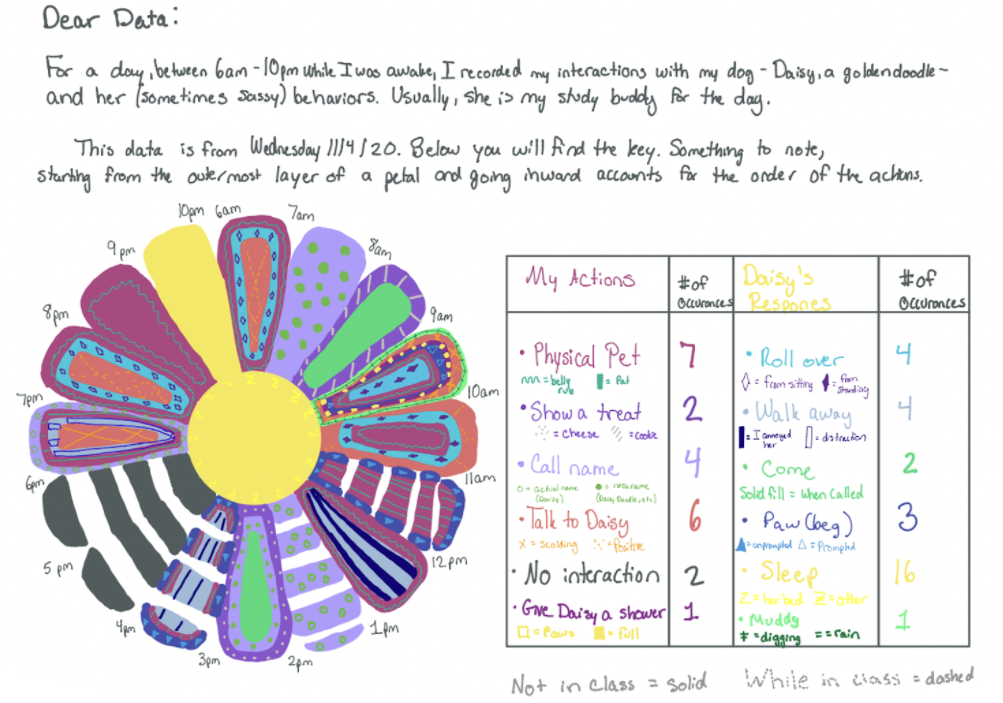 Dear Data:
For a day, between 6am - 10pm while I was awake, I recorded my interactions with my dog - Daisy, a goldendoodle -
and her (sometimes sassy) behaviors. Usually, she is my study buddy for the day.
This data is from Wednesday 11/4/20. Below you will find the key. Something to note,
starting from the outermost layer of a petal and going inward accounts for the order of the actions.
10pm 6am 7am
8am
9am
10am
11am
12pm
1pm
2pm
3pm
4pm
5pm
6pm
7pm
8pm
9pm
My Actions
# of Occurances
Daisy's Respones
# of Occurances
• Physical Pet 7
= belly rub = Pat
• Show a treat 2
= cheese = cookie
• Call name 4
= actual name (Daisy) = nickname (Daisy Doodle, etc.)
• Talk to Daisy 6
X = scolding = Positive
• No interaction 2
• Give Daisy a shower 1
= Paws = full
• Roll over 4
= from sitting = from standing
• Walk away 4
= I annoyed her = distraction
• Come 2
Solid fill = when called
• Paw (beg) 3
= unprompted = Prompted
• Sleep 16
Z = her bed Z = other
• Muddy 1
= digging = rain
Not in class = solid
While in class = dashed